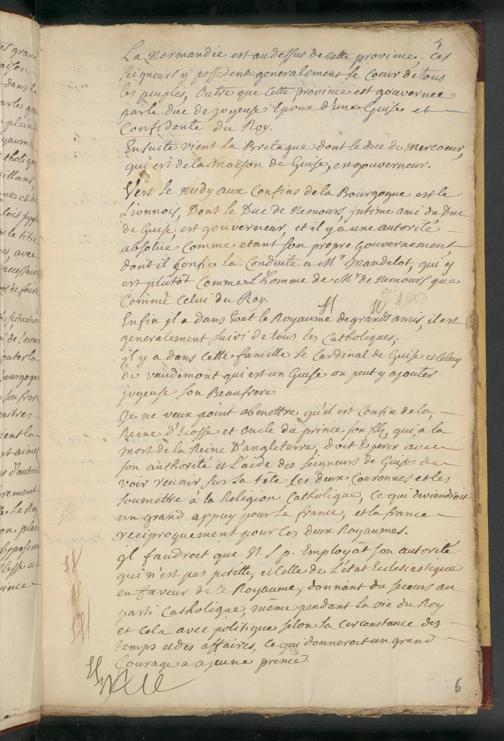 La Normandie est au dessus de cette province, ces
seigneurs y possedent generalement le coeur de tous
les peuples, Outre que cette province est gouvernée
par le duc de joyeuse Epoux d'une Guise et
Confidente du Roy.
Ensuite vient la Bretagne dont le duc de mercoeur,
qui est de la Maison de Guise, est gouverneur.
Vers le midy aux Confins de la Bourgogne est le
Lionnois, Dont le Duc de Nemours, intime ami du Duc
de Guise est gouverneur, et il y a une autorité
absolue Comme etant son propre Gouvernement
dont il confie la Conduite a Mr Mandelot, qui y
est plutôt Comme l'homme de Mr de Nemours que
Comme Celui du Roy.
Enfin il a dans tout le Royaume de grands amis, il est
generalement suivi de tous les Catholiques,
il y a dans cette famille le Cardinal de Guise et Celuy
de vaudemont qui est un Guise on peut y ajouter
joyeuse son Beaufrere
Je ne veux point obmettre qu'il est Cousin de la
Reine d'Ecosse et Oncle du prince son fils, qui, à la
mort de la Reine D'angleterre, doit Esperer avec
son authorité et l'aide des seigneurs de Guise de
voir reunir sur sa tete les deux Couronnes et les
soumettre à la Religion Catholique, ce qui deviendroit
un grand appuy pour la france, et la france
reciproquement pour les deux Royaumes.
il faudroit que N. S. p. Employât son autorité
qui n'est pas petitte, et Celle de l'état Eclesiastique
en faveur de le Royaume, donnant du secours au
parti Catholique, même pendant la vie du Roy
et Cela avec politique selon la Circonstance des
temps et des affaires, ce qui donneroit un grand
Courage a ajeune prince.
6